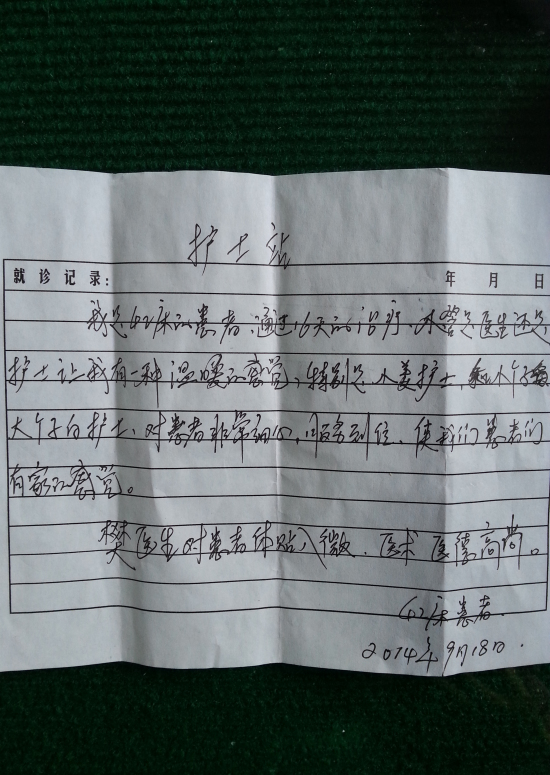 护士站
就诊记录： 年 月 日
我是42床的患者，通过16天的治疗，不管是医生还是
护士让我有一种温暖的感觉，特别是小姜护士，和小个子
大个子的护士，对患者非常细心，服务到位、使我们患者们
有家的感觉。
樊医生对患者体贴入微、医术 医德高尚。
42床患者
2014年9月18日.